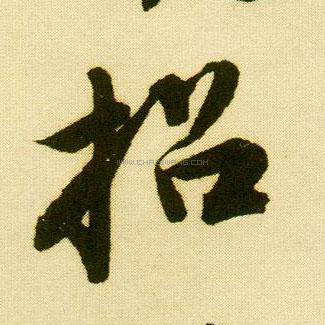 招
WWW.CHAZIWANG.COM